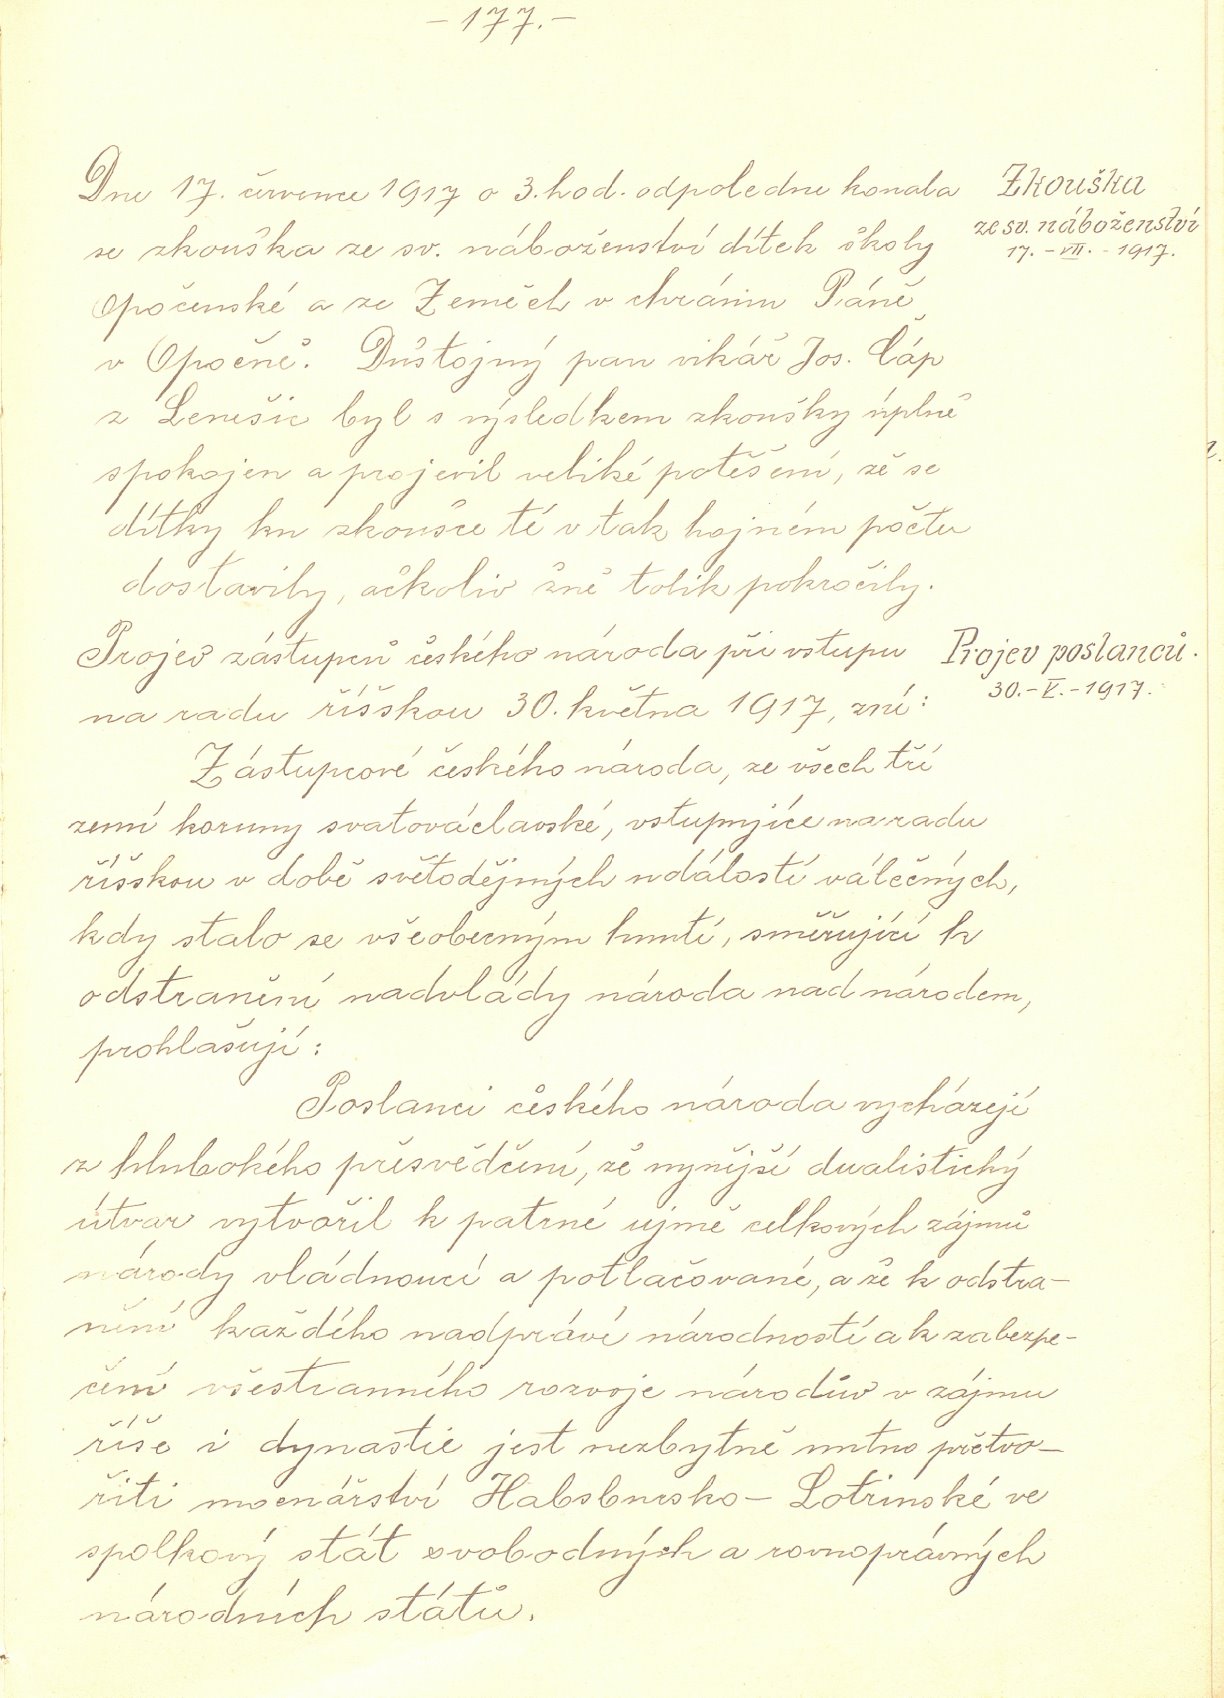 - 177. -
Dne 17. července 1917 o 3. hod. odpoledne konala
se zkouška ze sv. náboženství dítek školy
Opočenské a ze Zeměch v chrámu Páně
v Opočně. Důstojný pan vikář Jos. Čáp
z Lenešic byl s výsledkem zkoušky úplně
spokojen a projevil veliké potěšení, že se
dítky ku zkoušce té v tak hojném počtu
dostavily, ačkoliv žně tolik pokročily.
Zkouška
ze sv. náboženství
17. - VII. - 1917.
Projev zástupců českého národa při vstupu
na radu říšskou 30. května 1917, zní:
Projev poslanců.
30. - V. - 1917.
Zástupcové českého národa, ze všech tří
zemí koruny svatováclavské, vstupujíce na radu
říšskou v době světodějných událostí válečných,
kdy stalo se všeobecným hnutí, směřující k
odstranění nadvlády národa nad národem,
prohlašují:
Poslanci českého národa vycházejí
z hlubokého přesvědčení, že nynější dualistický
útvar vytvořil k patrné ujmě celkových zájmů
národy vládnoucí a potlačované, a že k odstra-
nění každého nadpráví národností a k zabezpe-
čení všestranného rozvoje národův v zájmu
říše i dynastie jest nezbytně nutno přetvo-
řiti mocnářství Habsbursko - Lotrinské ve
spolkový stát svobodných a rovnoprávných
národních států.